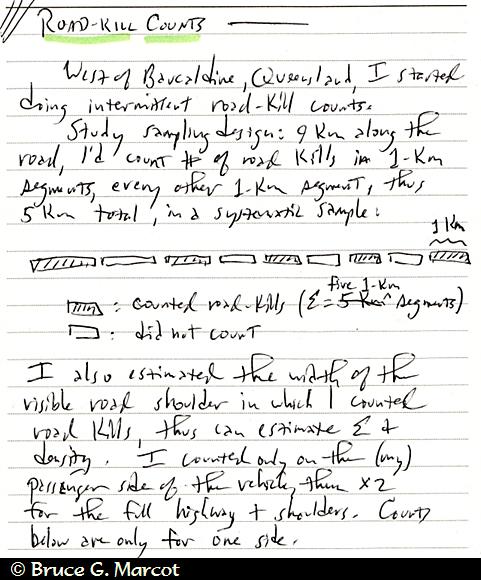 ROAD-KILL COUNTS
West of Barcaldine, Queensland, I started
doing intermittent road-kill counts.
Study sampling design: 9 Km along the
road, I'd count # of road kills in 1-Km
segments, every other 1-Km segment, thus
5 Km total, in a systematic sample:
1 Km
: counted road-kills (Σ = five 1-Km segments)
: did not count
I also estimated the width of the
visible road shoulder in which I counted
road kills, thus can estimate Σ &
density. I counted only on the (my)
passenger side of the vehicle, then x2
for the full highway + shoulders. Counts
below are only for one side.
© Bruce G. Marcot